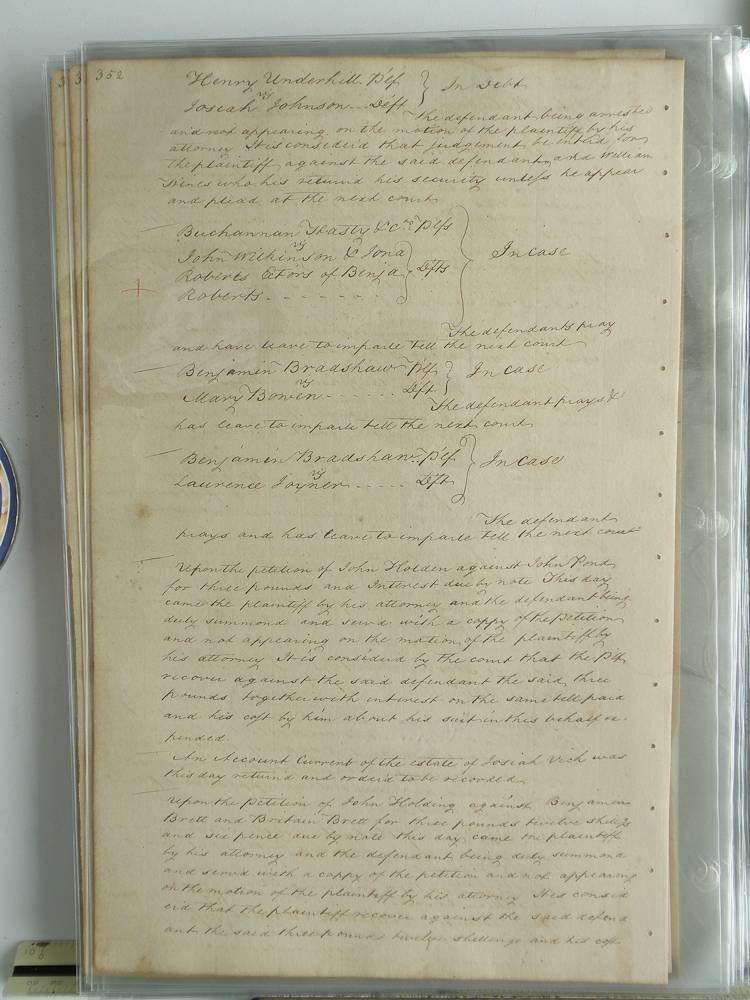 352
Henry Underhill. Plf } In Debt
vs
Josiah Johnson - - Deft
The defendant being arrested
and not appearing on the motion of the plaintiff by his
attorney It is consider'd that judgement be enterd for
the plaintiff against the said defendant and William
Hines who his returnd his security unless he appear
and plead at the next court
Buchannan Hasty & Co. Plfs
vs
John Wilkinson & Jona
Roberts Extors of Benja } Defts } In case
Roberts - - - - - - -
The defendants pray
and have leave to imparle till the next court
Benjamin Bradshaw Plf } In Case
vs
Mary Bowen - - - - - - Deft
The defendant prays &
has leave to imparle till the next court
Benjamin Bradshaw. Plf } In Case
vs
Laurence Joyner - - - - - Deft
The defendant
prays and has leave to imparle till the next court
Upon the petition of John Holden against John Pond
for three pounds and Interest due by note This day
came the plaintiff by his attorney and the defendant being
duly summond and serv'd with a coppy of the Petition
and not appearing on the motion of the plaintiff by
his attorney It is considerd by the court that the Plf
recover against the said defendant the said three
pounds together with interest on the same till paid
and his cost by him about his suit in this behalf ex-
pended.
An Account Current of the estate of Josiah Vick was
this day returnd and orderd to be recorded
Upon the Petition of John Holding against Benjamin
Brett and Britain Brett for three pounds twelve shillings
and six pence due by note this day came the plaintiff
by his attorney and the defendant being duly summond
and servd with a coppy of the petition and not appearing
on the motion of the plaintiff by his attorney It is consid
erd that the plaintiff recover against the said defend
ant the said three pounds twelve shillings and his cost